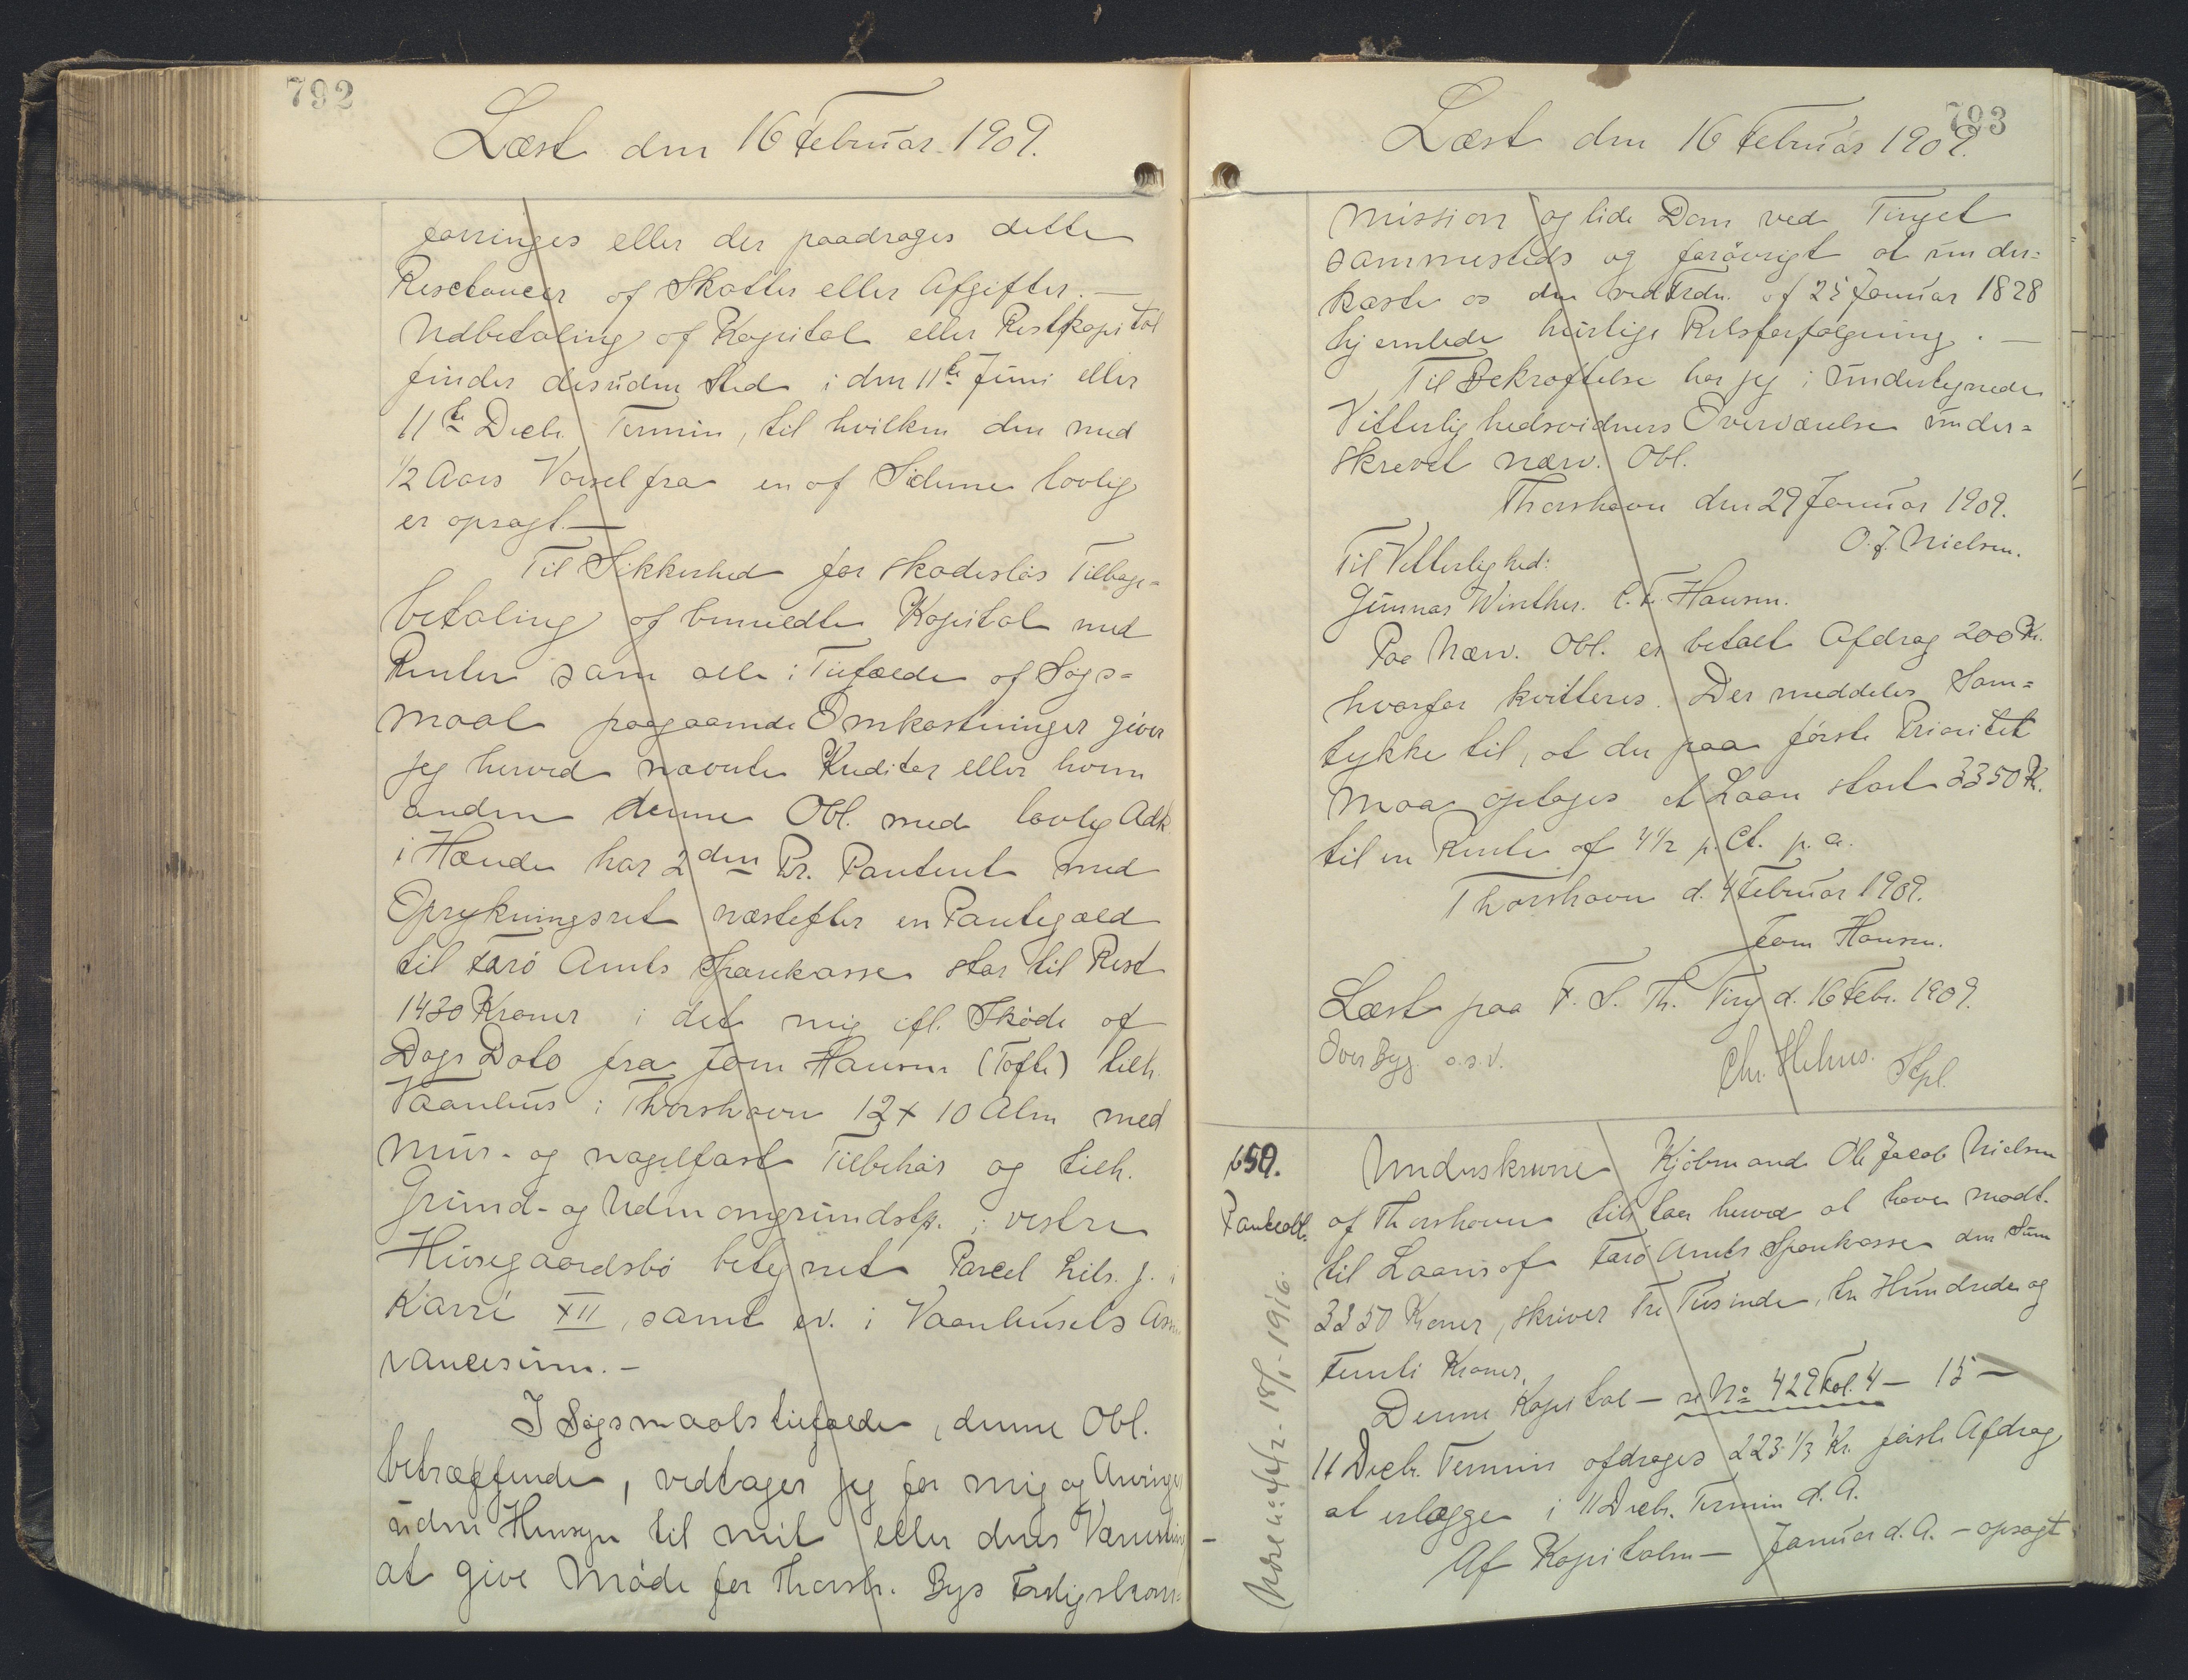 792
Læst den 16 Februar 1909.
forringes eller der paadrages dette
Restancer af Skatter eller Afgifter. —
Udbetaling af Kapital eller Restkapital
finder desuden Sted i den 11te Juni eller
11te Decbr. Termin, til hvilken den med
1/2 Aars Varsel fra en af Siderne lovlig
er opsagt. —
Til Sikkerhed for skadeslös Tilbage=
betaling af bemeldte Kapital med
Renter som alle i Tilfælde af Søgs=
maal paagaaende Omkostninger giver
jeg herved nævnte Kreditor eller hvem
anden denne Obl. med lovlig Adk.
i Hænde har 2den Pr. Panteret med
Oprykningsret næstefter en Pantegæld
til Farö Amts Sparekasse stor til Rest
1430 Kroner i det mig ifl. Sköde af
Dags Dato fra Joen Hansen (Tofte) tilh.
Vaanhus i Thorshavn 12 x 10 Alen med
mur- og nagelfast Tilbehör og tilh.
Grund- og Udenomsgrundstk. i vestre
Husegaardsbö betegnet Parcel Litr. j. i
Karré XII, samt ev. i Vaanhusets Assu
rancesum. —
I Søgsmaalstilfælde, denne Obl.
betræffende, vedtager jeg for mig og Arvinger
uden Hensyn til mit eller deres Værneting
at give Möde for Thorsh. Bys Forligskom=
793
Læst den 16 Februar 1909.
mission og lide Dom ved Tinget
sammesteds og forövrigt at under=
kaste os den ved Frdn. af 25 Januar 1828
hjemlede hurtige Retsforfølgning. —
Til Bekræftelse har jeg i undertegnede
Vitterlighedsvidners Overværelse under=
skrevet nærv. Obl.
Thorshavn den 29 Januar 1909.
O. J. Nielsen.
Til Vitterlighed:
Gunnar Winther. C. F. Hansen.
Paa Nærv. Obl. er betalt Afdrag 200 Kr.
hvorfor kvitteres. Der meddeles Sam=
tykke til, at der paa förste Prioritet
maa optages et Laan stort 3350 Kr.
til en Rente af 4 1/2 p. Ct. p. a.
Thorshavn d. 4 Februar 1909.
Joen Hansen.
Læst paa F. S. Th. Ting d. 16 Febr. 1909.
Over Byg. o.s.v.
Chr. Stpl.
659.
Panteobl.
Underskrevne Kjöbmand Ole Jacob Nielsen
af Thorshavn tilstaar herved at have modt.
til Laans af Farö Amts Sparekasse den Sum
3350 Kroner, skriver Tre Tusinde, tre Hundrede og
Femti Kroner.
Denne Kapital — se No 429 Fol. 4 — 15 —
11 Decbr. Termin afdrages 223 1/3 Kr. første Afdrag
at erlægge i 11 Decbr. Termin d. A.
Af Kapitalen — Januar d. A. — opsagt
18/1-1916.